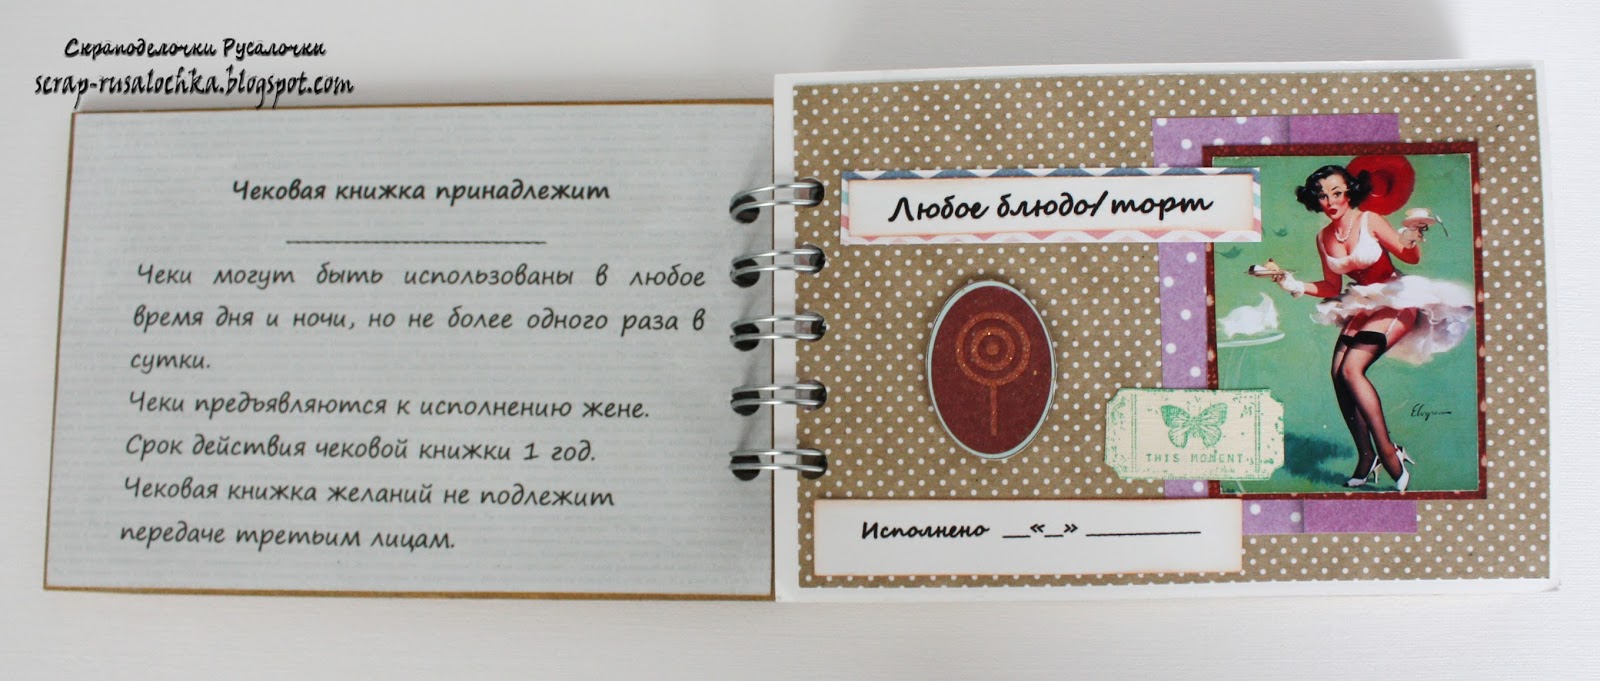 Скраподелочки Русалочки
scrap-rusalochka.blogspot.com
Чековая книжка принадлежит
Чеки могут быть использованы в любое
время дня и ночи, но не более одного раза в
сутки.
Чеки предъявляются к исполнению жене.
Срок действия чековой книжки 1 год.
Чековая книжка желаний не подлежит
передаче третьим лицам.
Любое блюдо/торт
THIS MOMENT
Исполнено __«_» __________